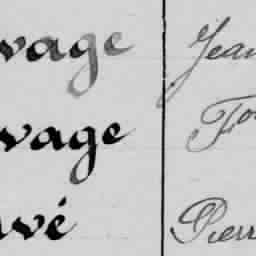 vage Jean
vage
vé Pierr